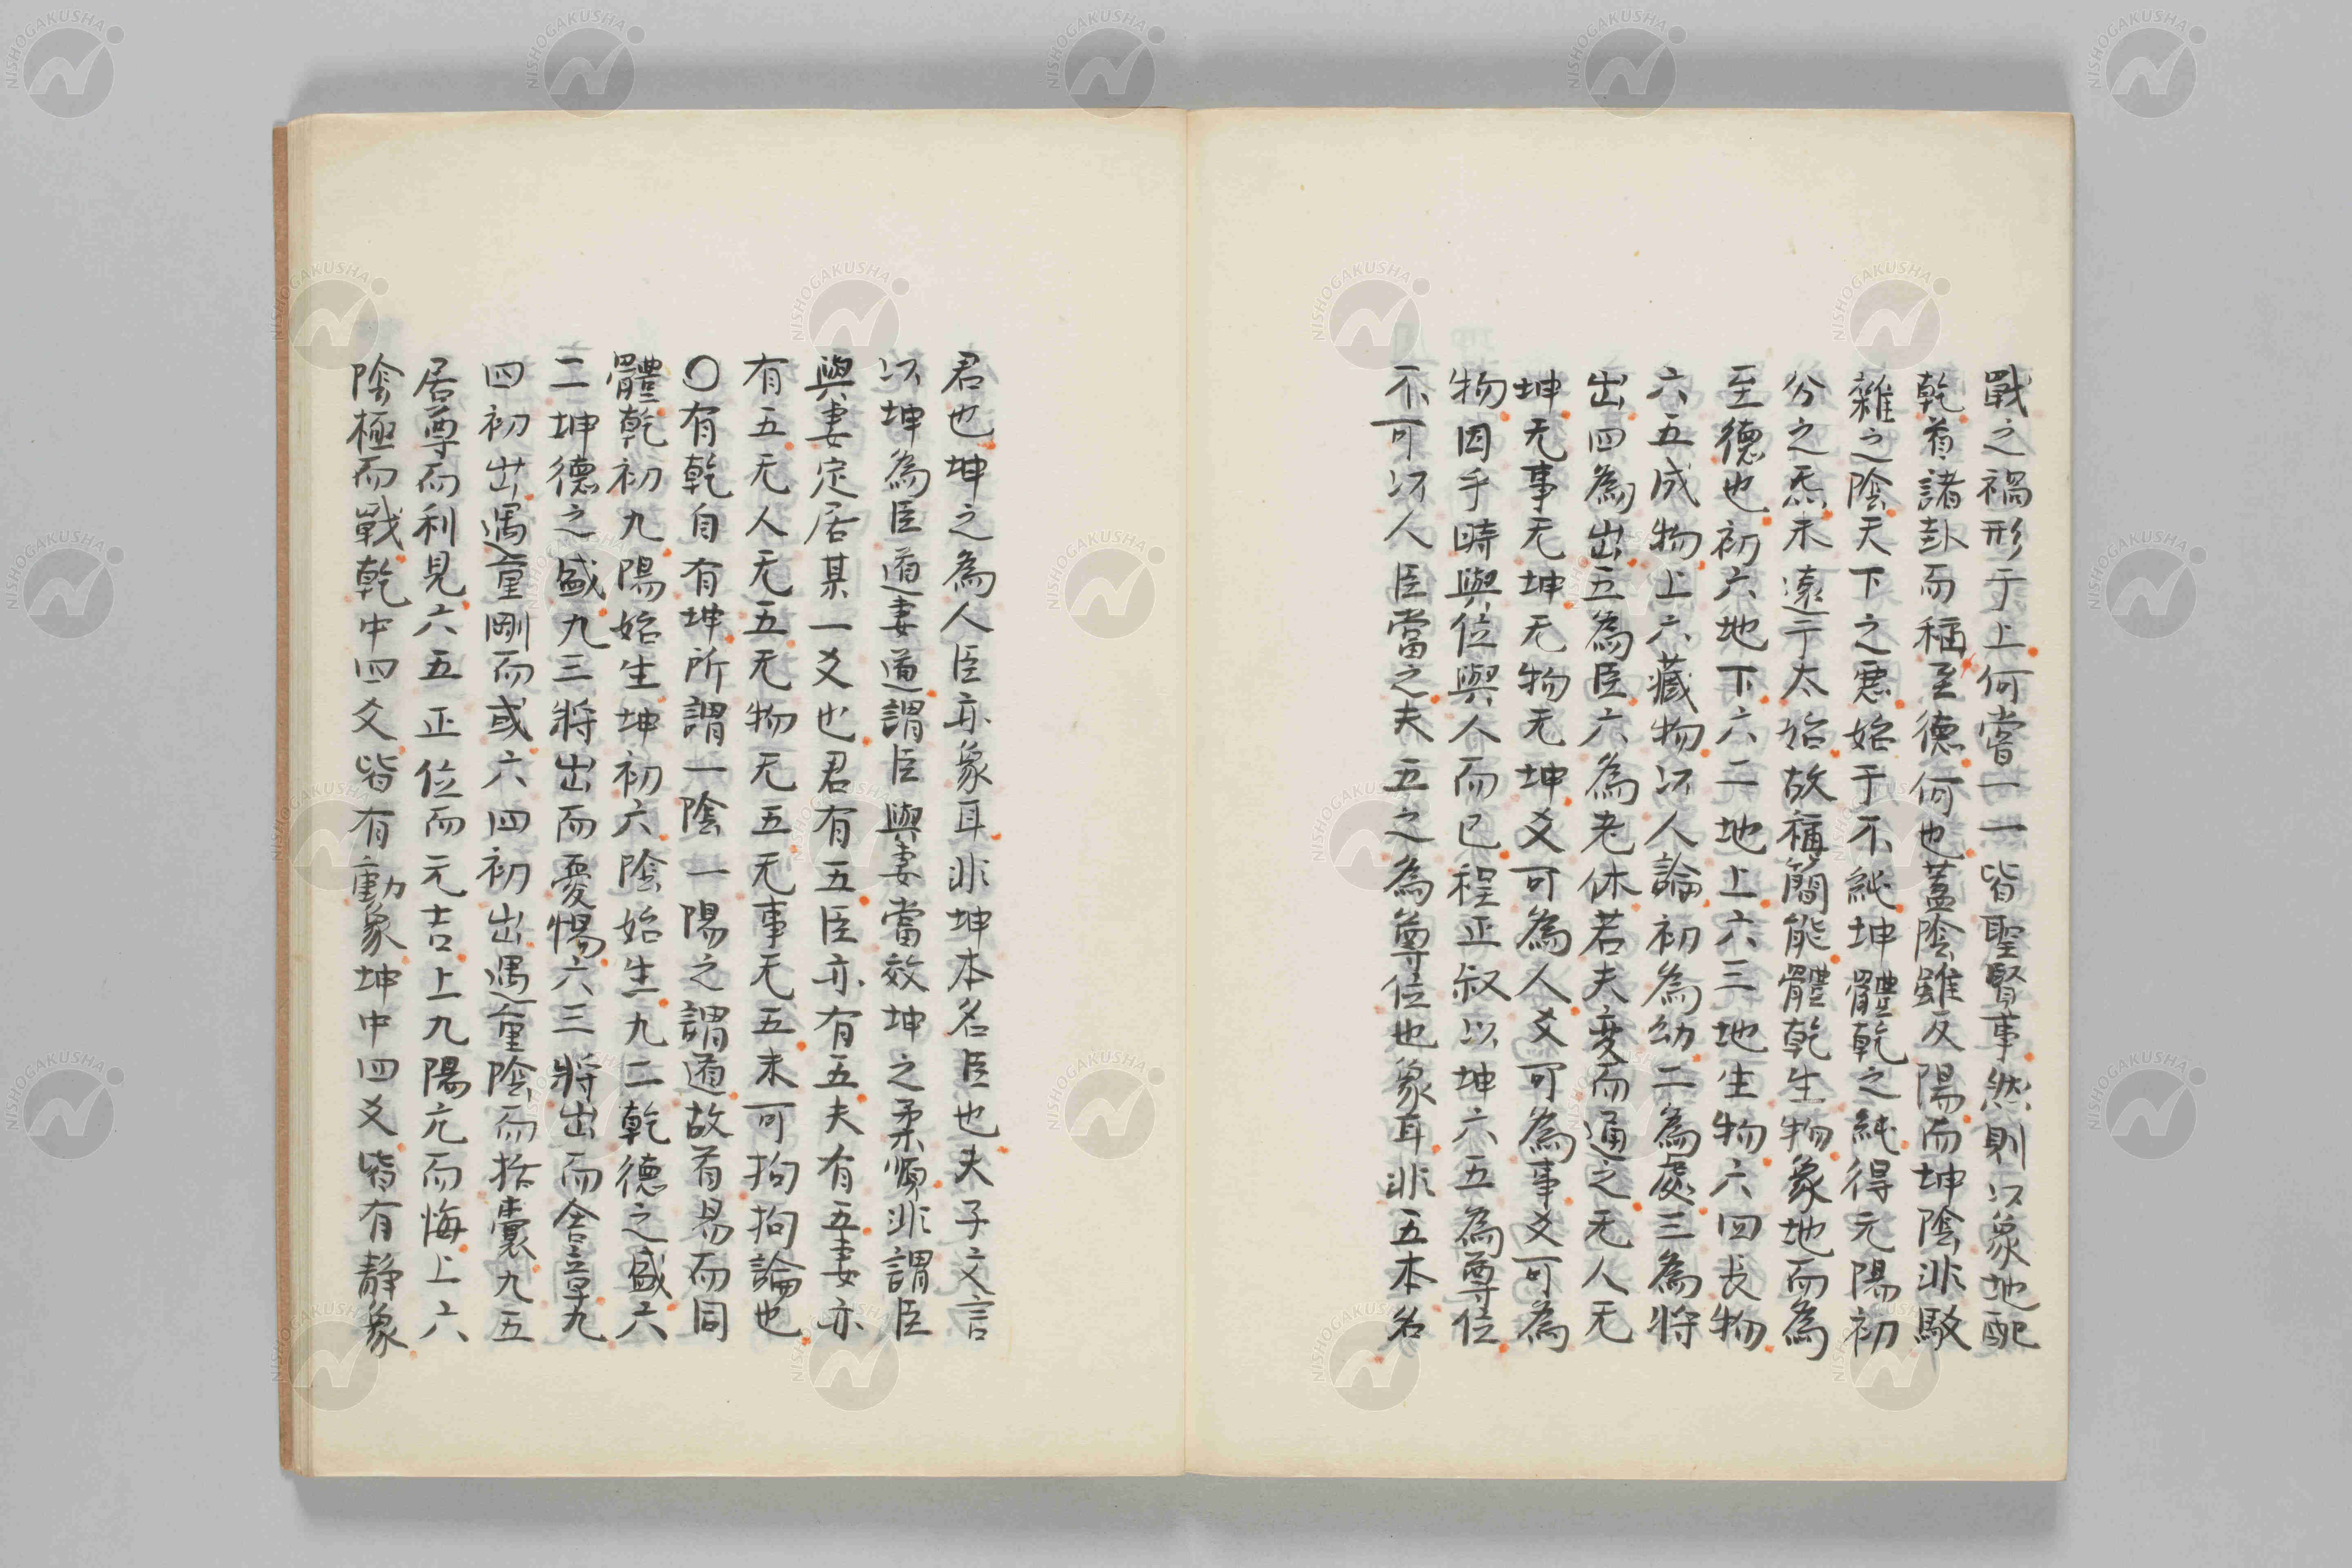 戰之禍形于上何嘗一一皆聖賢事然則以象地配
乾首諸卦而稱至德何也蓋陰雖反陽而坤陰非駁
雜之陰天下之惡始于不純坤體乾之純得元陽初
分之炁未遠于太始故稱簡能體乾生物象地而為
至德也初六地下六二地上六三地生物六四長物
六五成物上六藏物以人論初為幼二為處三為將
出四為出五為臣六為老休若夫變而通之无人无
坤无事无坤无物无坤爻可為人爻可為事爻可為
物因乎時與位與人而已程正叔以坤六五為尊位
不可以人臣當之夫五之為尊位也象耳非五本名
君也坤之為人臣亦象耳非坤本名臣也夫子文言
以坤為臣道妻道謂臣與妻當效坤之柔順非謂臣
與妻定居某一爻也君有五臣亦有五夫有五妻亦
有五无人无五无物无五无事无五未可拘拘論也
〇有乾自有坤所謂一陰一陽之謂道故首易而同
體乾初九陽始生坤初六陰始生九二乾德之盛六
二坤德之盛九三將出而憂惕六三將出而含章九
四初出遇重剛而或六四初出遇重陰而括囊九五
居尊而利見六五正位而元吉上九陽亢而悔上六
陰極而戰乾中四爻皆有動象坤中四爻皆有靜象
NISHOGAKUSHA